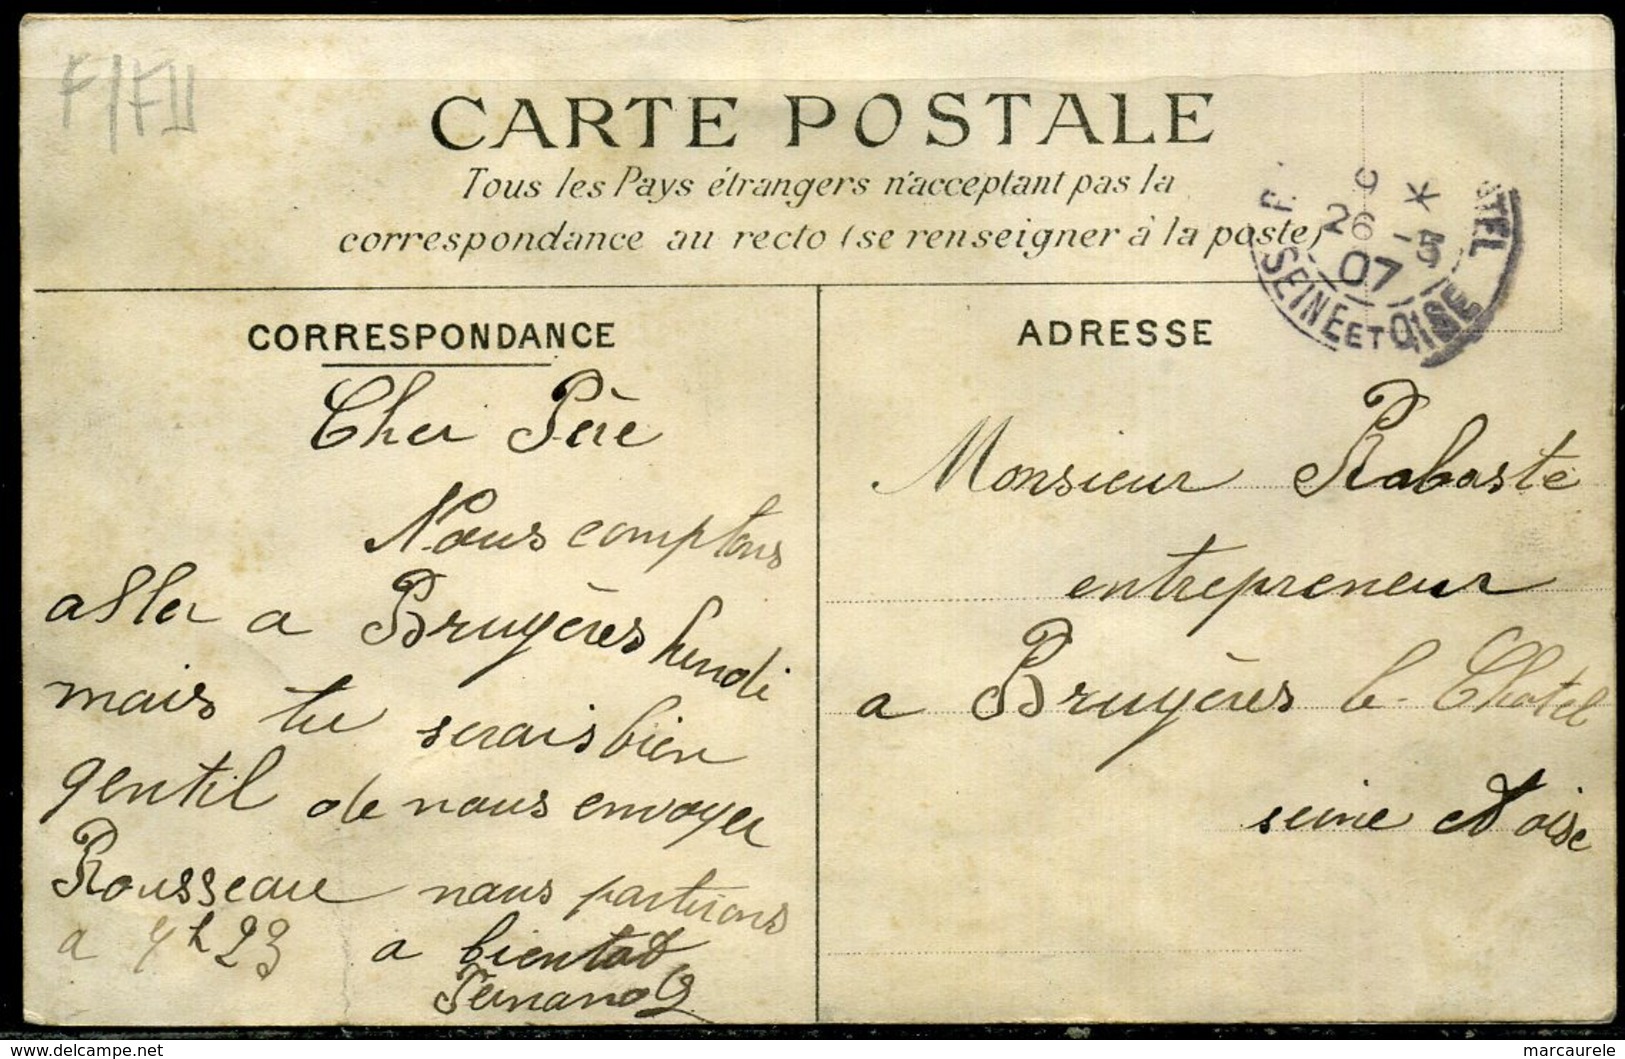 F/FII
CARTE POSTALE
Tous les Pays étrangers n'acceptant pas la
correspondance au recto (se renseigner à la poste)
9 *
26 -5
07
SEINE ET OISE
CORRESPONDANCE
Cher Père
Nous comptons
aller a Bruyères lundi
mais tu serais bien
gentil de nous envoyer
Rousseau nous partirons
a h 23 a bientot
Fernand
ADRESSE
Monsieur Rabaste
entrepreneur
a Bruyères le Chatel
seine et oise
marcaurele